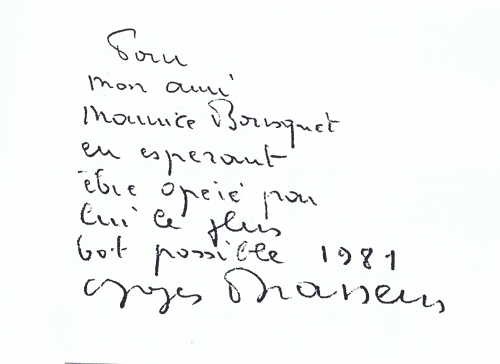 Pour
mon ami
Maurice Bousquet
en esperant
être opéré par
lui le plus
tôt possible 1981
Georges Brassens